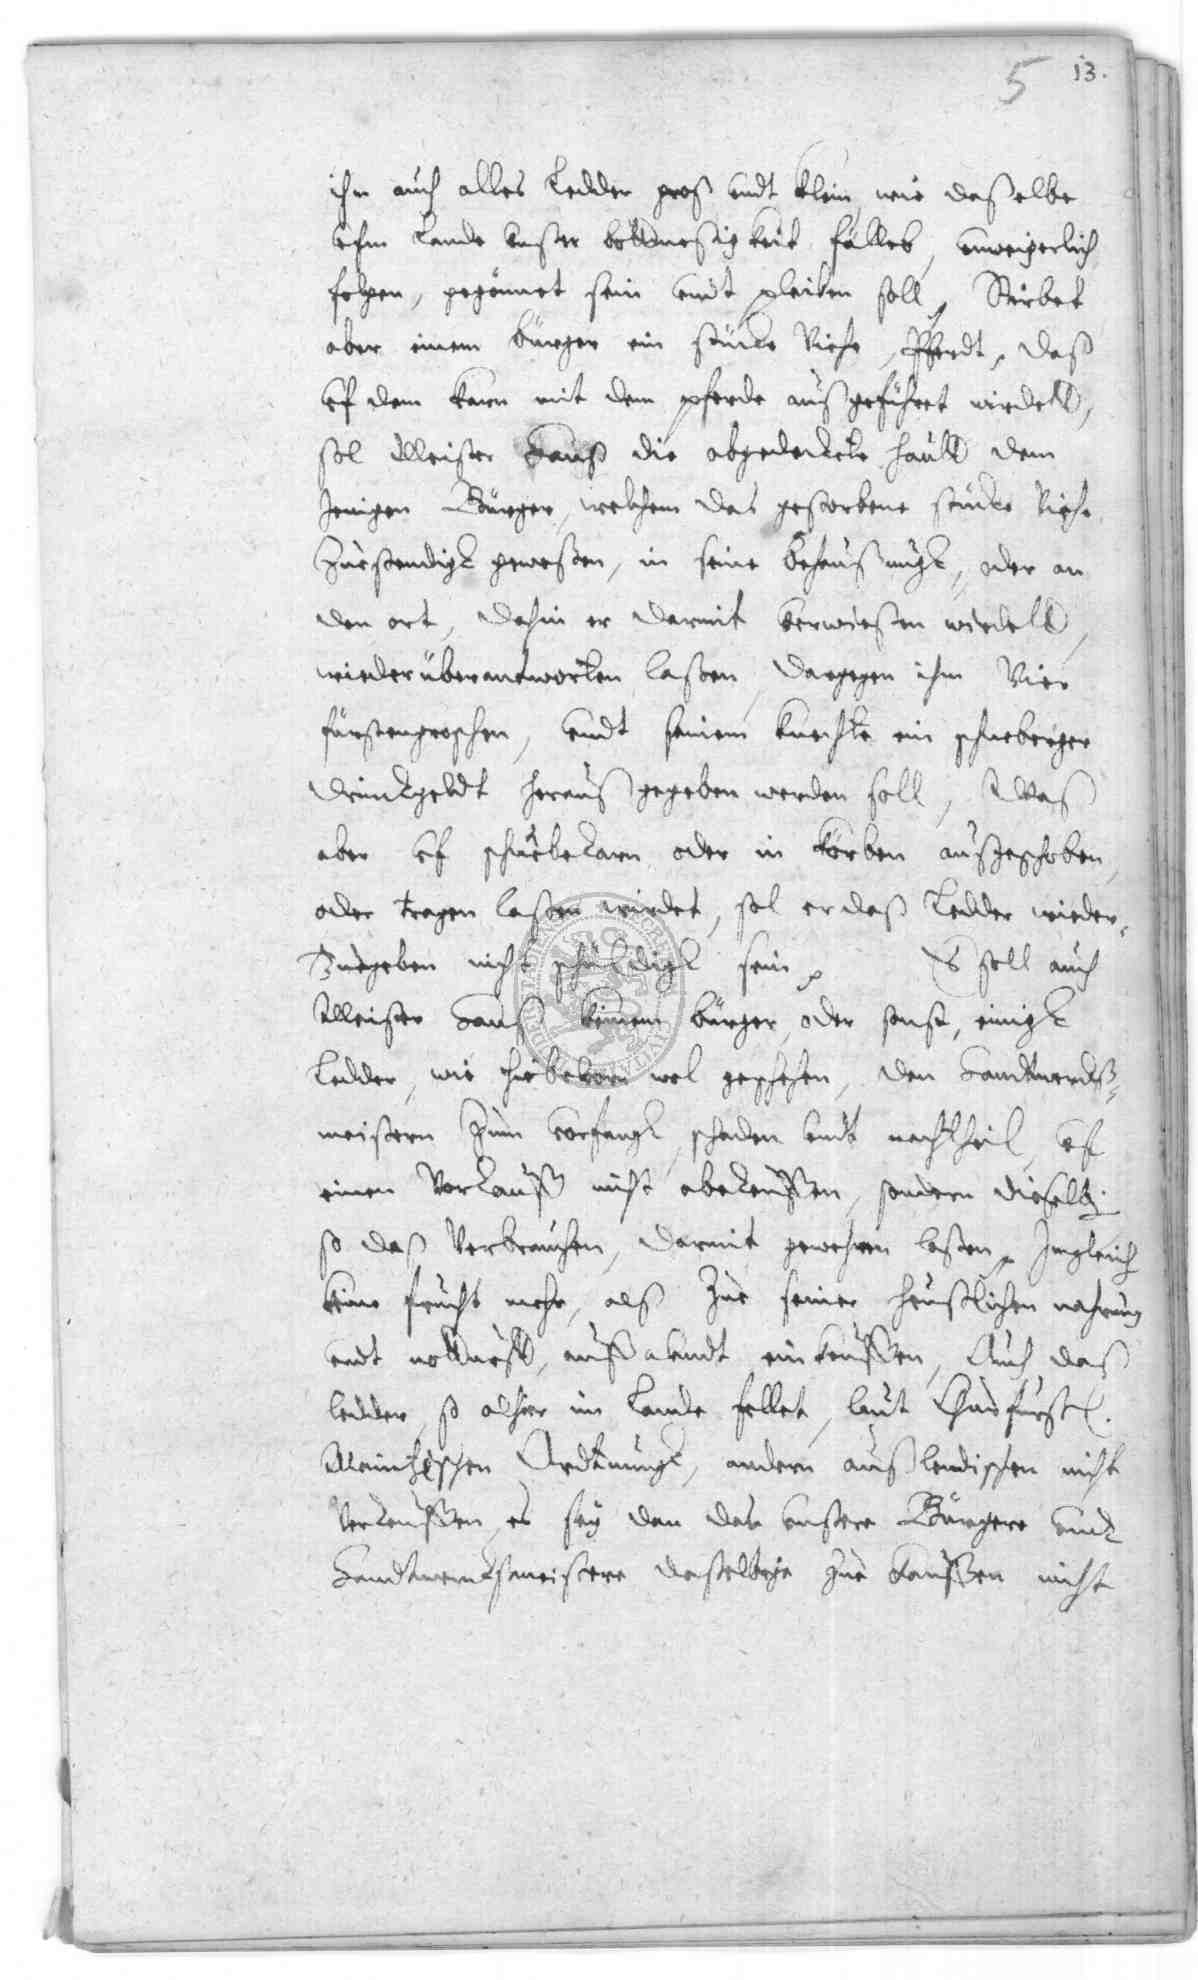 5 13.
ihn auch alles Ledder gros undt klein, wie daßelbe
ufm Lande unßer bottmeßigkeit fallet, unweigerlich
folgen, gegönnet sein undt pleiben soll, Stirbet
aber einem bürger ein stücke Viehe, Pferdt, daß
uf dem karn mit dem pferde ausgeführet wirdett,
sol Meister Hanß die abgedeckete hautt dem
Jenigen Bürger, welchem das gestorbene stücke Viehe
Zustendigk geweßen, in seine behaußungk, oder an
den ort, dahin er darmit verwießen wirdett,
wiederüberantworten laßen, dargegen ihm Vier
fürstengroschen, undt seinem knechte ein schneberger
Drinckgeldt heraus gegeben werden soll, Was
aber uf schuebekarn oder in körben außgeschoben,
oder tragen laßen wirdet, sol er daß Ledder wieder-
Zugeben nicht schuldigk sein, Es soll auch
Meister Hanß keinem bürger oder sonst, einigk
Ledder, wie hiebevorn wol geschehen, den Handtwercks-
meistern Zum vorfangk, schaden undt nachtheil, uf
einen Vorkauff nicht abekeuffen, sondern dieselb.
so daß Verbrauchen, darmit gewehren laßen, Jngleich
keine frucht mehr, alß Zue seiner heußlichen nahrung
undt notturfft, einkeuffen, Auch daß
ledder, so alhier im Lande fellet, laut Churfürstl.
Maintzischen Ordtnungk, andern außlendischen nicht
Verkeuffen, es sey dan das unßere Bürgere undt
Handtwercksmeistere daßelbige Zue kauffen nicht